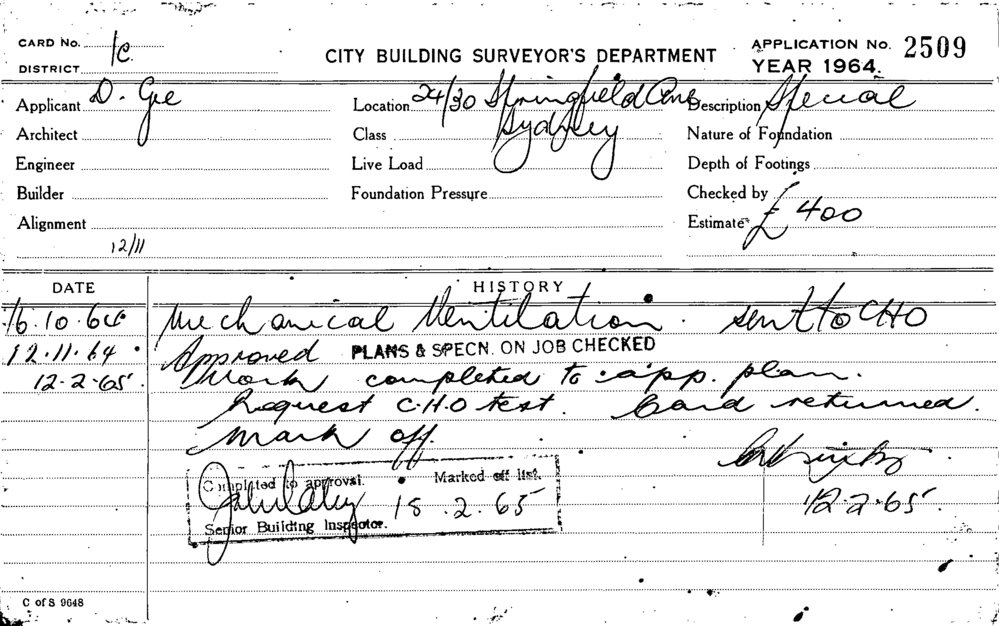 CARD No. 1C.
DISTRICT
CITY BUILDING SURVEYOR'S DEPARTMENT
APPLICATION No. 2509
YEAR 1964.
Applicant D. Gee
Location 24/30 Springfield Ave Sydney
Description Special
Architect
Class
Nature of Foundation
Engineer
Live Load
Depth of Footings
Builder
Foundation Pressure
Checked by
Alignment
Estimate £400
12/11
DATE HISTORY
16.10.64 Mechanical Ventilation. sent to CHO
12.11.64 Approved PLANS & SPECN. ON JOB CHECKED
12-2-65. Work completed to app. plan.
Request C.H.O test. Card returned.
Mark off.
12-2-65
Completed to approval. Marked off list.
18.2.65
Senior Building Inspector.
C of S 9648